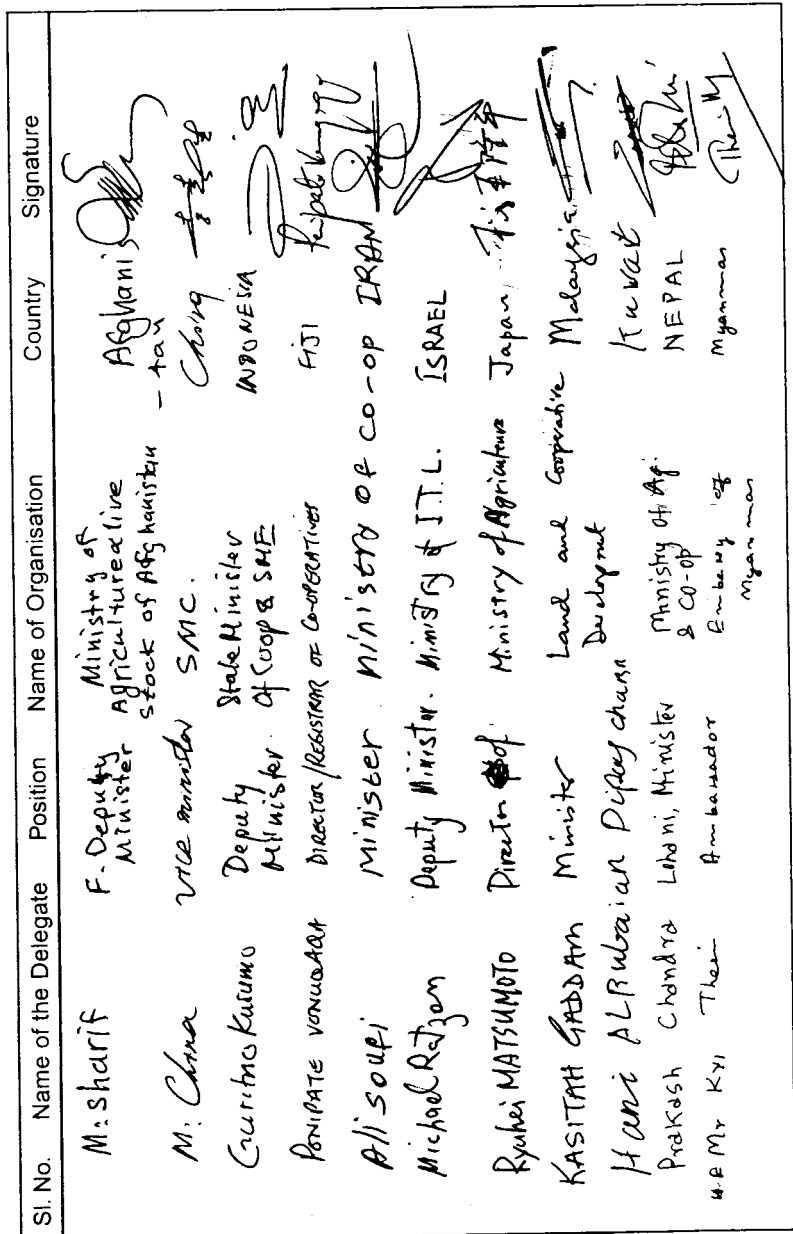 Sl. No. Name of the Delegate Position Name of Organisation Country Signature
M. Sharif F. Deputy Minister Ministry of Agriculture live stock of Afghanistan Afghanis - tan
M. China vice minister SMC. China
Kusumo Deputy Minister State Minister Of Coop & SME INDONESIA
PONIPATE DIRECTOR/REGISTRAR OF CO-OPERATIVES FIJI
Ali soufi Minister Ministry of co-op IRAN
Michael Ratzon Deputy Minister. Ministry of I.T.L. ISRAEL
Ryuhei MATSUMOTO Director of Ministry of Agriculture Japan
KASITAH GADDAM Minister Land and Cooperative Development Malaysia
Hani ALRubaian Kuwait
Prakash Chandra Lohani, Minister Ministry of Ag. & CO-OP NEPAL
H.E Mr Kyi Thein Ambassador Embassy of Myanmar Myanmar